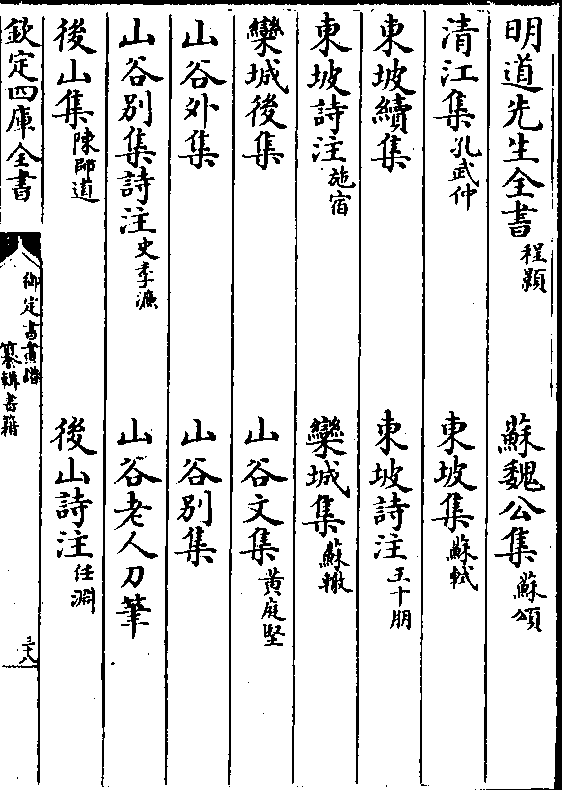 明道先生全書 程顥 蘇魏公集 蘇頌
清江集 孔武仲 東坡集 蘇軾
東坡續集 東坡詩注 王十朋
東坡詩注 施宿 欒城集 蘇轍
欒城後集 山谷文集 黃庭堅
山谷外集 山谷别集
山谷别集詩注 史季溫 山谷老人刀筆
後山集 陳師道 後山詩注 任淵
欽定四庫全書 御定書畫譜 纂輯書籍